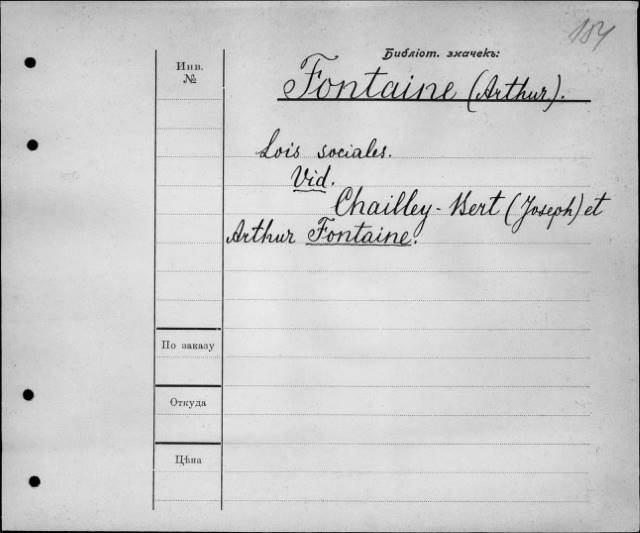 184
Библіот. значекъ:
Инв.
№
Fontaine (Arthur).
Lois sociales.
Vid.
Chailley-Bert (Joseph) et
Arthur Fontaine.
По заказу
Откуда
Цѣна